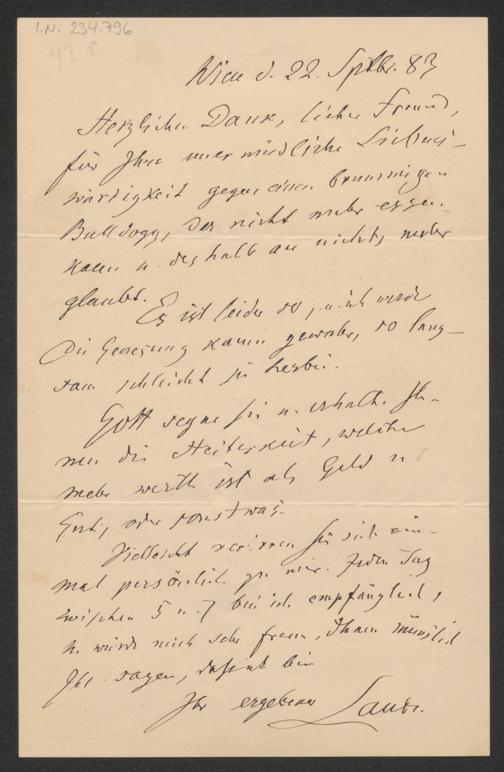 I.N. 234.796
Wien d. 22. Sptbr. 83
Herzlichen Dank, lieber Freund,
für Ihre unermüdliche Liebens-
würdigkeit gegen einen brummigen
Bulldogg, der nicht mehr essen
kann u. deshalb an nichts mehr
glaubt.
Es ist leider so, u. ich werde
die Genesung kaum gewahr, so lang-
sam schleicht sie herbei.
Gott segne Sie u. erhalte Ih-
nen die Heiterkeit, welche
mehr werth ist als Geld u
Gut, oder sonst was.
Vielleicht verirren Sie sich ein-
mal persönlich zu mir. Jeden Tag
zwischen 5 u. 7 bin ich empfänglich,
u. würde mich sehr freuen, Ihnen mündlich
zu sagen, daß ich bin
Ihr ergebener Laube.